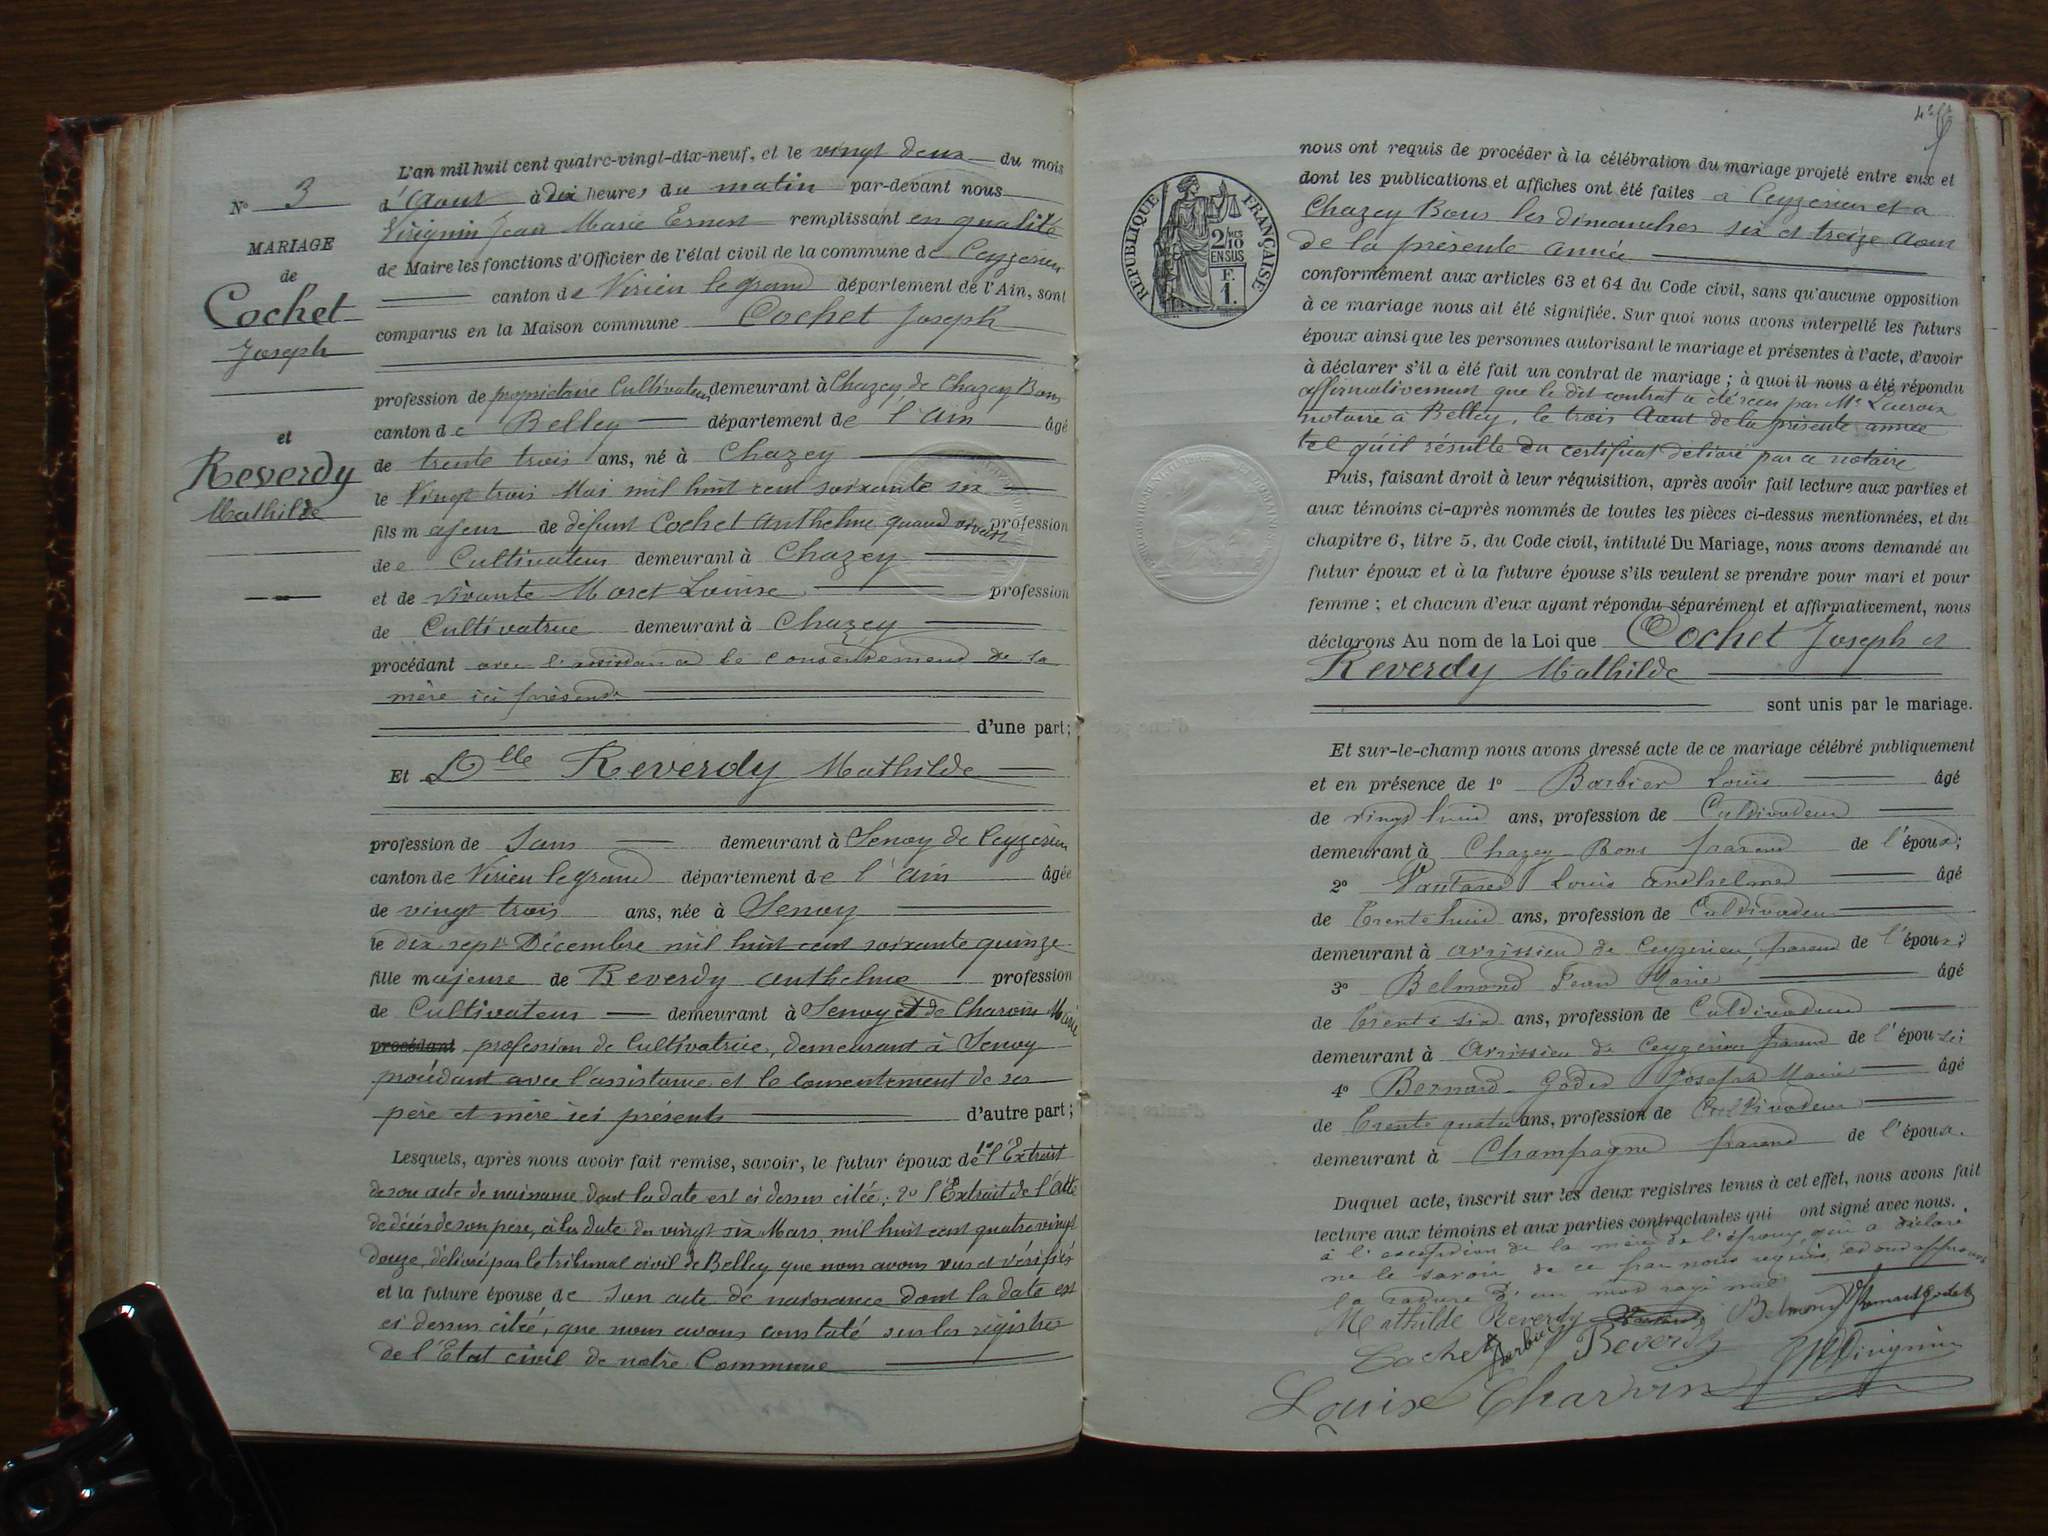 N° 3
MARIAGE
de
Cochet
Joseph
et
Reverdy
Mathilde
L'an mil huit cent quatre-vingt-dix-neuf, et le vingt deux du mois
d'Aout à dix heures du matin par-devant nous
Virignin Jean Marie Ernest remplissant en qualité
de Maire les fonctions d'Officier de l'état civil de la commune de Ceyzerieu
canton de Virieu le grand département de l'Ain, sont
comparus en la Maison commune Cochet Joseph
profession de propriétaire Cultivateur demeurant à Chazey de Chazey Bons
canton de Belley département de l'Ain âgé
de trente trois ans, né à Chazey
le Vingt trois Mai mil huit cent soixante six
fils majeur de défunt Cochet Anthelme quand vivait profession
de Cultivateur demeurant à Chazey
et de vivante Moret Louise profession
de Cultivatrice demeurant à Chazey
procédant avec l'assistance le consentement de sa
mère ici présente
d'une part;
Et Dlle Reverdy Mathilde
profession de Sans demeurant à Senoy de Ceyzerieu
canton de Virieu le grand département de l'Ain âgée
de vingt trois ans, née à Senoy
le dix sept Décembre mil huit cent soixante quinze
fille majeure de Reverdy Anthelme profession
de Cultivateur demeurant à Senoy et de Charvin Marie
procédant profession de Cultivatrice, demeurant à Senoy
procédant avec l'assistance et le consentement de ses
père et mère ici présents d'autre part;
Lesquels, après nous avoir fait remise, savoir, le futur époux de 1° l'Extrait
de son acte de naissance dont la date est ci dessus citée; 2° l'Extrait de l'acte
de décès de son père, à la date du vingt six Mars mil huit cent quatre vingt
douze, délivré par le tribunal civil de Belley que nous avons vus et vérifiés
et la future épouse de son acte de naissance dont la date est
ci dessus citée, que nous avons constaté sur les registres
de l'Etat civil de notre Commune
RÉPUBLIQUE FRANÇAISE
2/10 MES
EN SUS
F.
1.
nous ont requis de procéder à la célébration du mariage projeté entre eux et
dont les publications et affiches ont été faites à Ceyzerieu et à
Chazey Bons les dimanches six et treize Aout
de la présente année
conformément aux articles 63 et 64 du Code civil, sans qu'aucune opposition
à ce mariage nous ait été signifiée. Sur quoi nous avons interpellé les futurs
époux ainsi que les personnes autorisant le mariage et présentes à l'acte, d'avoir
à déclarer s'il a été fait un contrat de mariage; à quoi il nous a été répondu
affirmativement que le dit contrat a été reçu par Me Lacroix
notaire à Belley, le trois Aout de la présente année
tel qu'il résulte du certificat délivré par ce notaire
Puis, faisant droit à leur réquisition, après avoir fait lecture aux parties et
aux témoins ci-après nommés de toutes les pièces ci-dessus mentionnées, et du
chapitre 6, titre 5, du Code civil, intitulé Du Mariage, nous avons demandé au
futur époux et à la future épouse s'ils veulent se prendre pour mari et pour
femme; et chacun d'eux ayant répondu séparément et affirmativement, nous
déclarons Au nom de la Loi que Cochet Joseph et
Reverdy Mathilde
sont unis par le mariage.
Et sur-le-champ nous avons dressé acte de ce mariage célébré publiquement
et en présence de 1° Barbier Louis âgé
de vingt huit ans, profession de Cultivateur
demeurant à Chazey Bons parent de l'époux;
2° Louis Anthelme âgé
de trente huit ans, profession de Cultivateur
demeurant à Avrissieu de Ceyzerieu, parent de l'époux;
3° Belmond Jean Marie âgé
de trente six ans, profession de Cultivateur
demeurant à Avrissieu de Ceyzerieu parent de l'épouse;
4° Bernard Godet Joseph Marie âgé
de trente quatre ans, profession de Cultivateur
demeurant à Champagne parent de l'époux.
Duquel acte, inscrit sur les deux registres tenus à cet effet, nous avons fait
lecture aux témoins et aux parties contractantes qui ont signé avec nous.
à l'exception de la mère de l'époux qui a déclaré
ne le savoir de ce par nous requis, et ont approuvé
la rature d'un mot rayé nul
Mathilde Reverdy Belmond Bernard Godet
Cochet Barbier Reverdy Virignin
Louise Charvin